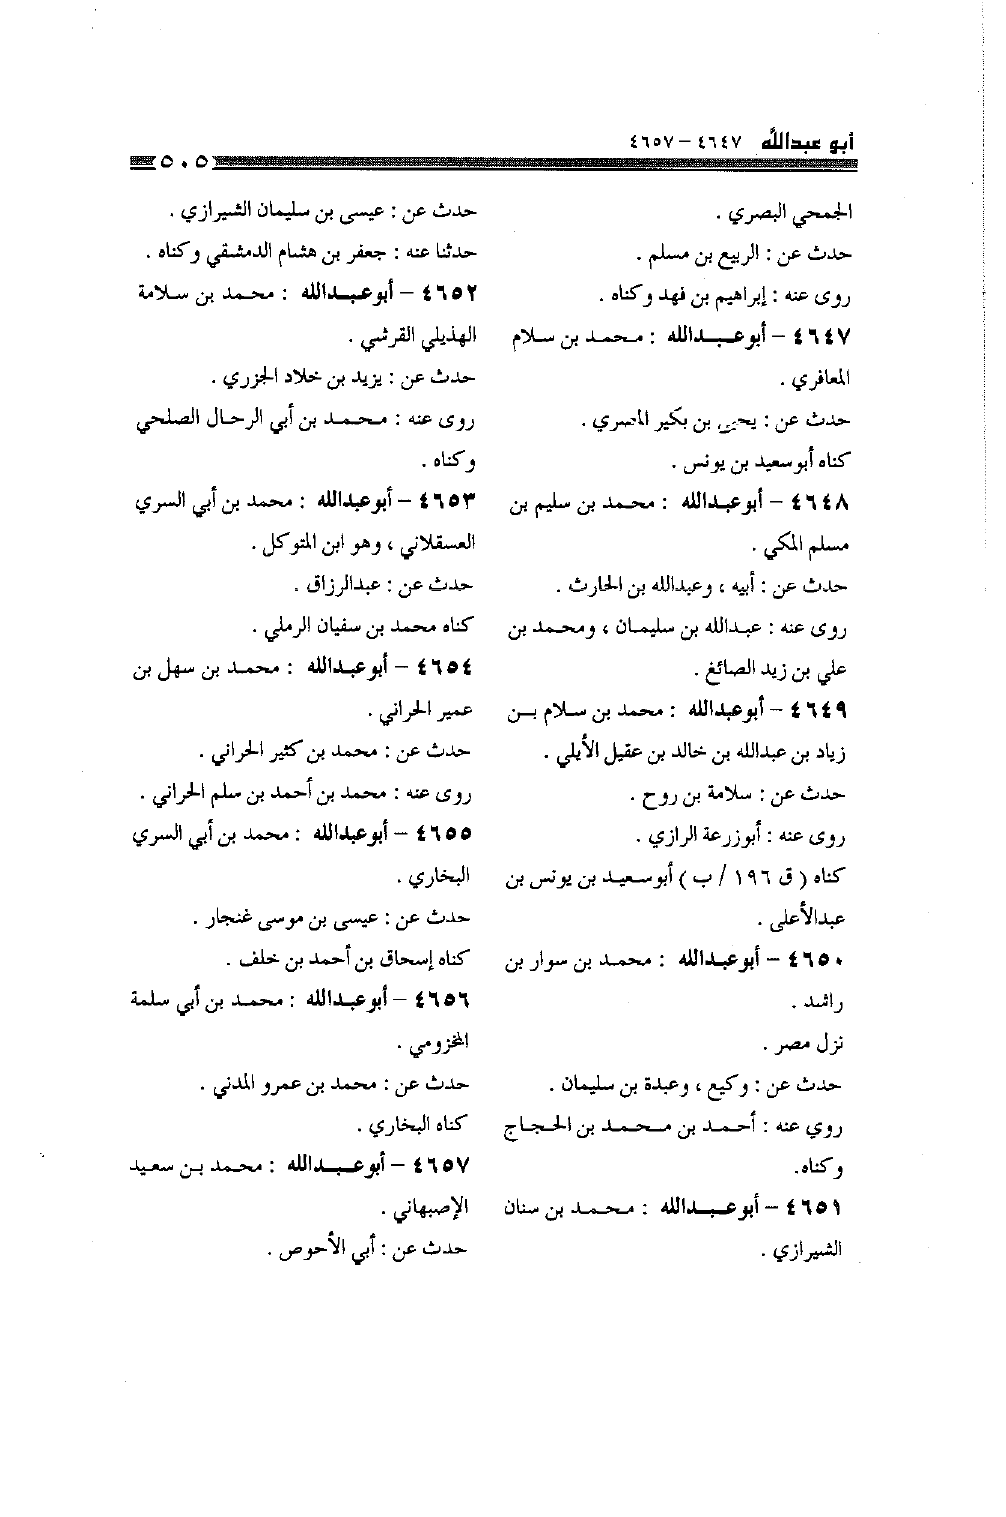 أبو عبدالله ٤٦٤٧ – ٤٦٥٧
٥٠٥
الجمحي البصري .
حدث عن : الربيع بن مسلم .
روى عنه : إبراهيم بن فهد وكناه .
٤٦٤٧ – أبو عبدالله : محمد بن سلام
المعافري .
حدث عن : يحيى بن بكير المصري .
كناه أبو سعيد بن يونس .
٤٦٤٨ – أبو عبدالله : محمد بن سليم بن
مسلم المكي .
حدث عن : أبيه ، وعبدالله بن الحارث .
روى عنه : عبدالله بن سليمان ، ومحمد بن
علي بن زيد الصائغ .
٤٦٤٩ – أبو عبدالله : محمد بن سلام بن
زياد بن عبدالله بن خالد بن عقيل الأيلي .
حدث عن : سلامة بن روح .
روى عنه : أبو زرعة الرازي .
كناه ( ق ١٩٦ / ب ) أبو سعيد بن يونس بن
عبدالأعلى .
٤٦٥٠ – أبو عبدالله : محمد بن سوار بن
راشد .
نزل مصر .
حدث عن : وكيع ، وعبدة بن سليمان .
روي عنه : أحمد بن محمد بن الحجاج
وكناه.
٤٦٥١ – أبو عبدالله : محمد بن سنان
الشيرازي .
حدث عن : عيسى بن سليمان الشيرازي .
حدثنا عنه : جعفر بن هشام الدمشقي وكناه .
٤٦٥٢ – أبو عبدالله : محمد بن سلامة
الهذيلي القرشي .
حدث عن : يزيد بن خلاد الجزري .
روى عنه : محمد بن أبي الرحال الصلحي
وكناه .
٤٦٥٣ – أبو عبدالله : محمد بن أبي السري
العسقلاني ، وهو ابن المتوكل .
حدث عن : عبدالرزاق .
كناه محمد بن سفيان الرملي .
٤٦٥٤ – أبو عبدالله : محمد بن سهل بن
عمير الحراني .
حدث عن : محمد بن كثير الحراني .
روى عنه : محمد بن أحمد بن سلم الحراني .
٤٦٥٥ – أبو عبدالله : محمد بن أبي السري
البخاري .
حدث عن : عيسى بن موسى غنجار .
كناه إسحاق بن أحمد بن خلف .
٤٦٥٦ – أبو عبدالله : محمد بن أبي سلمة
المخزومي .
حدث عن : محمد بن عمرو المدني .
كناه البخاري .
٤٦٥٧ – أبو عبدالله : محمد بن سعيد
الإصبهاني .
حدث عن : أبي الأحوص .